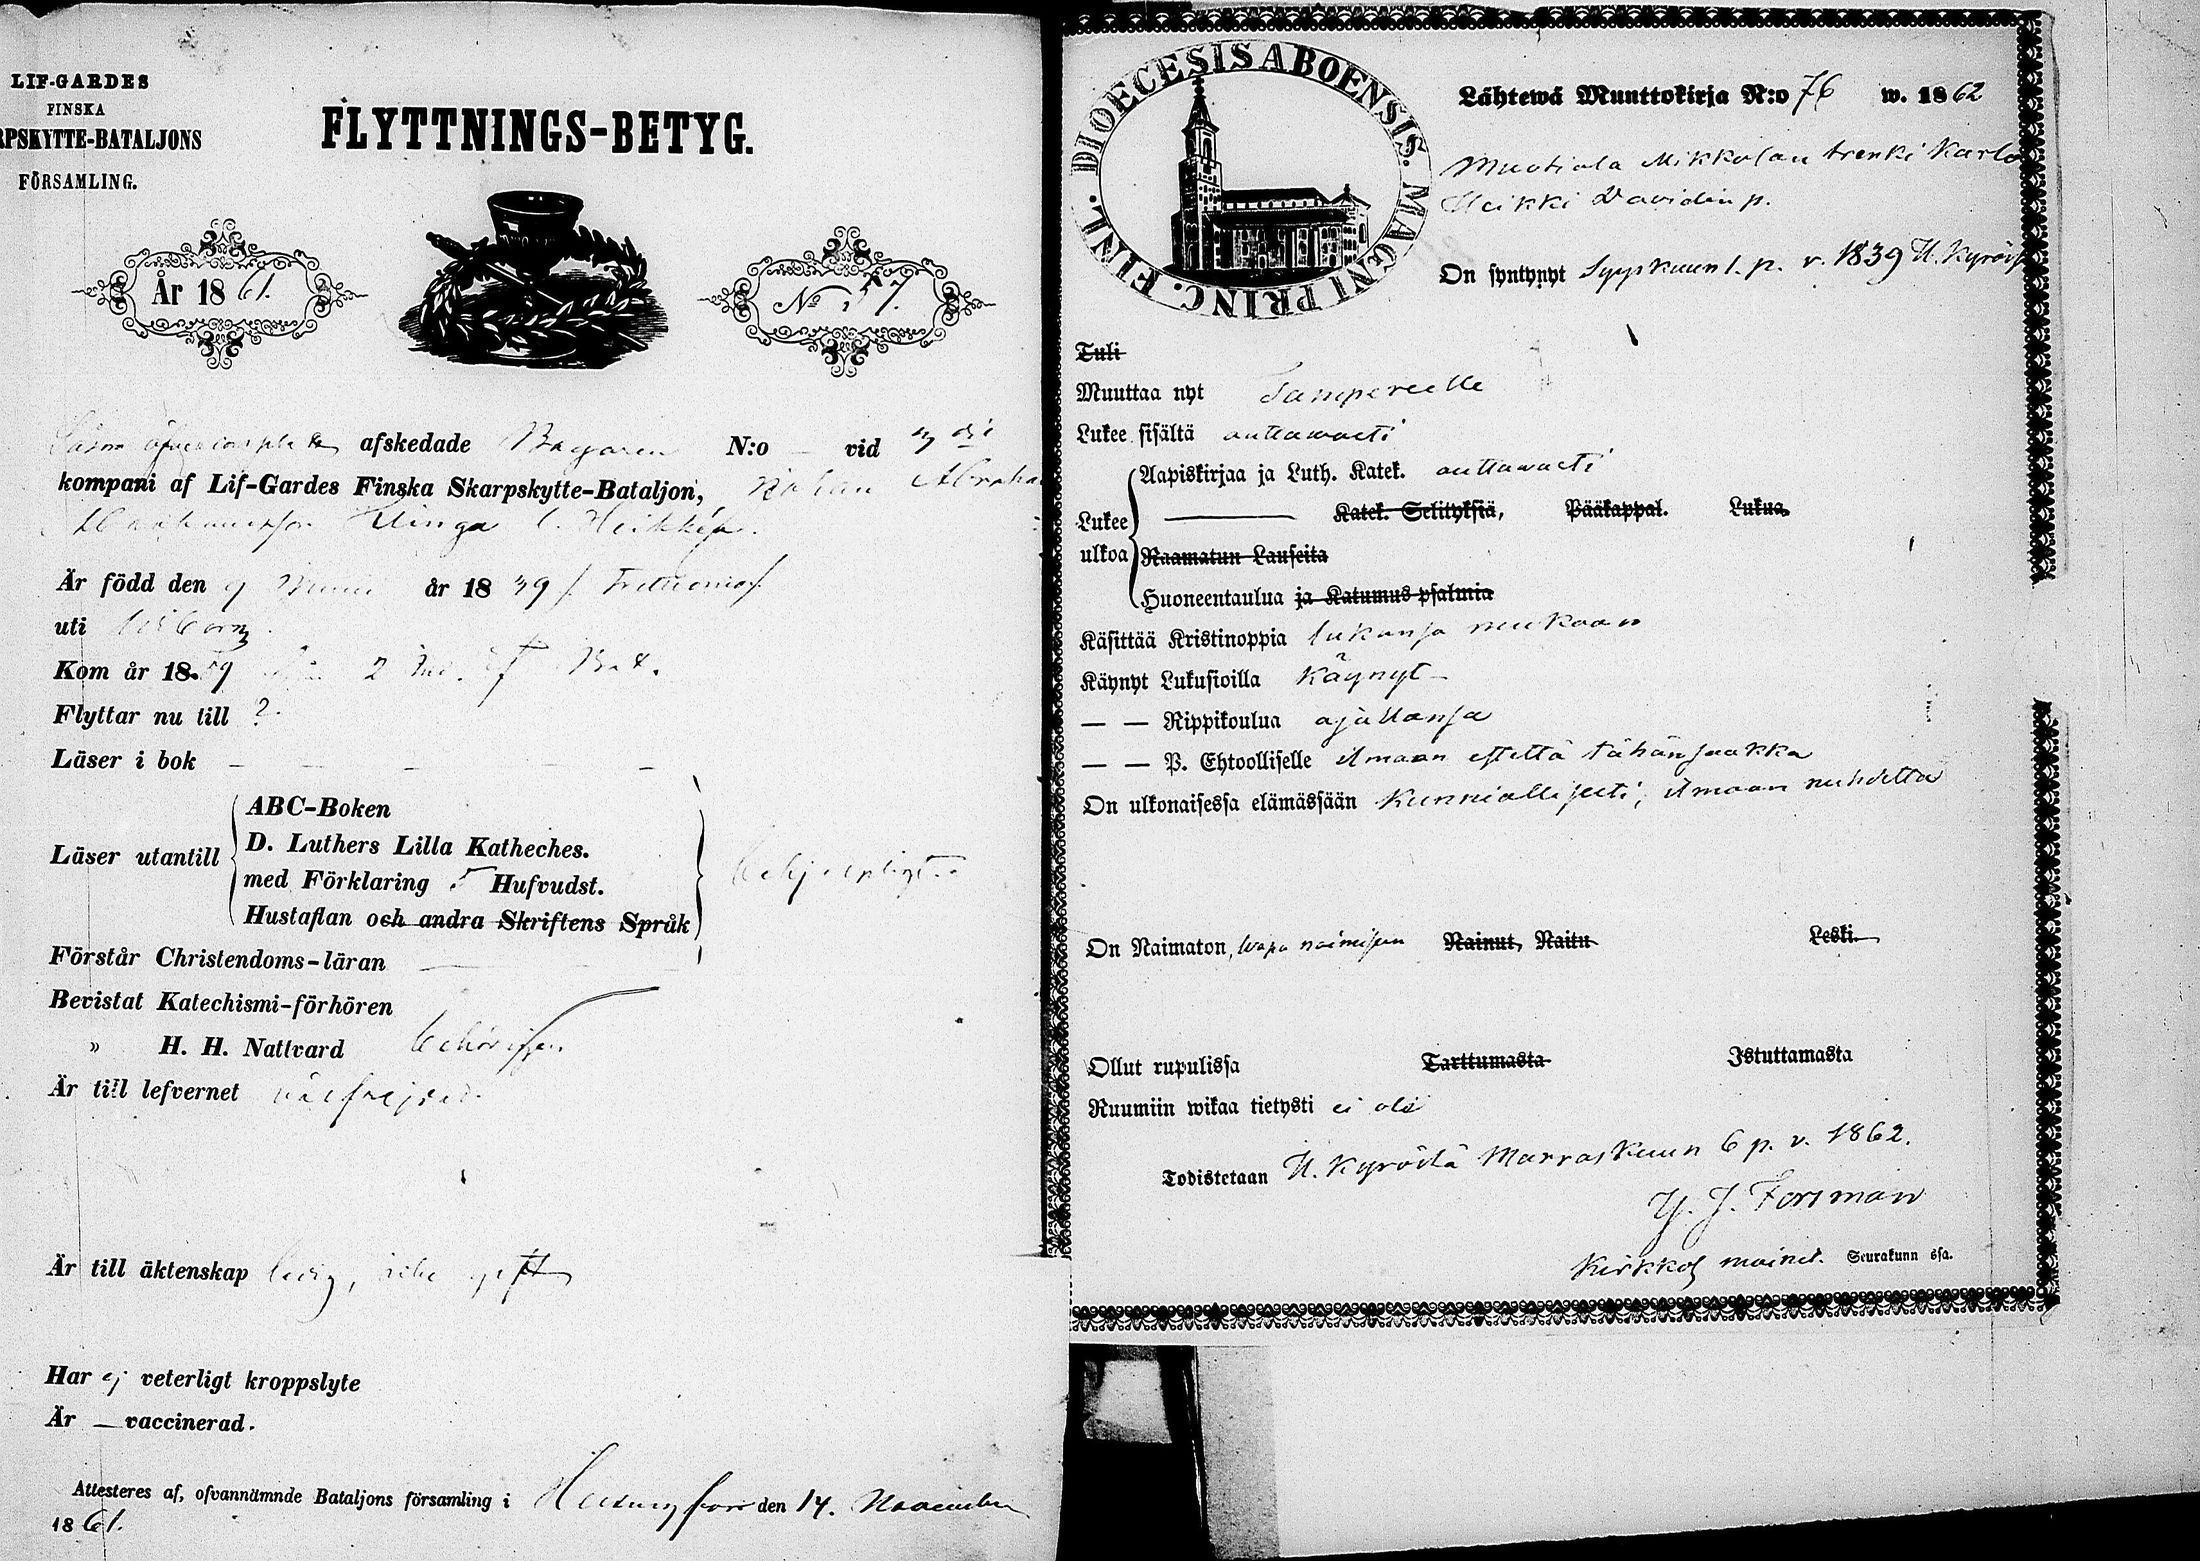 LIF-GARDES
FINSKA
RPSKYTTE-BATALJONS
FÖRSAMLING.
FLYTTNINGS-BETYG.
År 1861.
№ 157.
Såsom afskedade N:o — vid
kompani af Lif-Gardes Finska Skarpskytte-Bataljon, Johan Abraham
Är född den 9 år 1839
uti
Kom år 1859 2
Flyttar nu till ?
Läser i bok — — — —
ABC-Boken
Läser utantill D. Luthers Lilla Katheches.
med Förklaring 5 Hufvudst.
Hustaflan och andra Skriftens Språk
Förstår Christendoms-läran
Bevistat Katechismi-förhören
» H. H. Nattvard behörigen
Är till lefvernet välfrejdad.
Är till äktenskap ledig, icke gift
Har ej veterligt kroppslyte
Är — vaccinerad.
Attesteres af, ofvannämnde Bataljons församling i Helsingfors den 14. November
1861.
DIOECESIS ABOENSIS. MAGNI PRINC. FINL.
Lähtewä Muuttokirja N:o 76 w. 1862
Muotiala Mikkolan trenki Karlo
Heikki Davidin p.
On syntynyt Syyskuun 1. p. v. 1839 H. Kyrös
Tuli
Muuttaa nyt Tampereelle
Lukee sisältä auttawasti
Aapiskirjaa ja Luth. Katek. auttawasti
Lukee Katek. Selityksiä, Pääkappal. Lukua,
ulkoa Raamatun Lauseita
Huoneentaulua ja Katumus psalmia
Käsittää Kristinoppia lukunsa mukaan
Käynyt Lukusioilla käynyt
— — Rippikoulua ajallansa
— — P. Ehtoolliselle ilmaan estettä tähänsaakka
On ulkonaisessa elämässään Kunniallisesti, ilmaan nuhdetta
On Naimaton, wapa naimisen Nainut, Naitu Leski.
Ollut rupulissa Tarttumasta Istuttamasta
Ruumiin wikaa tietysti ei ole
Todistetaan H. Kyröstä Marraskuun 6 p. v. 1862.
Y. J. Forsman
Kirkkoh Seurakunn ssa.